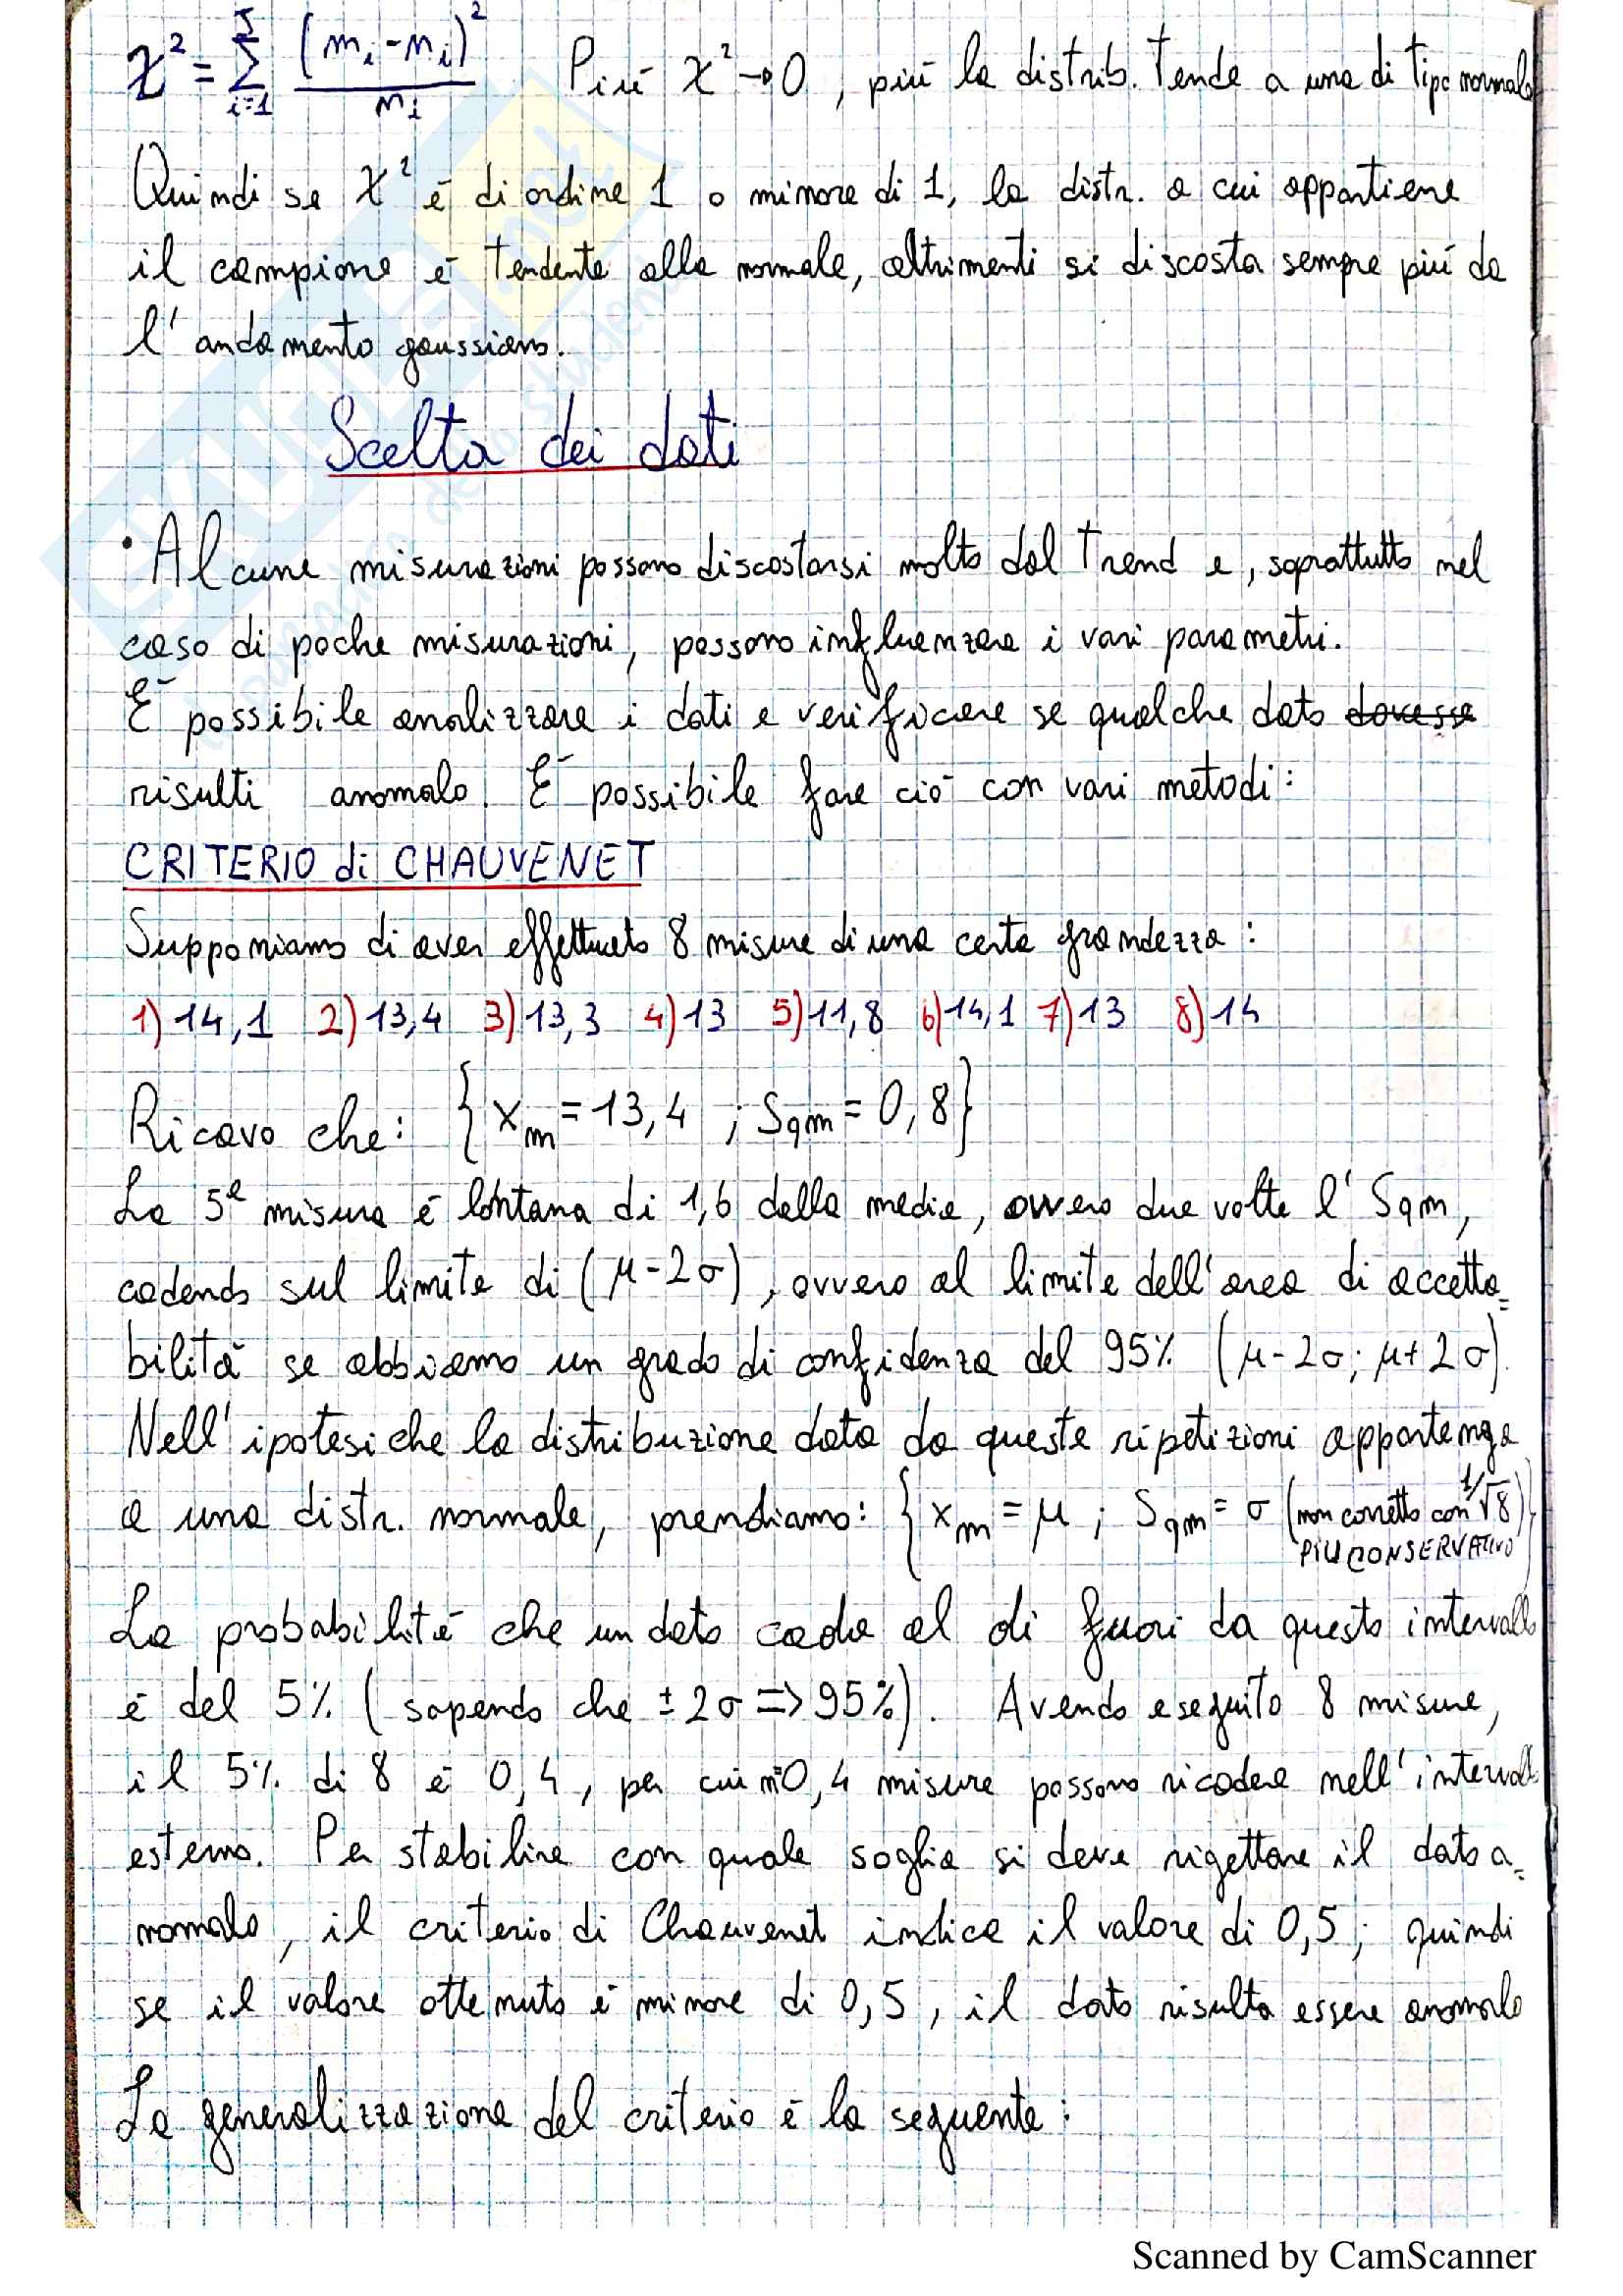 χ² = Σ_{i=1}^{J} (m_i - n_i)² / n_i Più χ² → 0, più la distrib. tende a una di tipo normale
Quindi se χ² é di ordine 1 o minore di 1, la distr. a cui appartiene
il campione é tendente alla normale, altrimenti si discosta sempre più da
l' andamento gaussiano.
Scelta dei dati
• Alcune misurazioni possono discostarsi molto dal trend e, soprattutto nel
caso di poche misurazioni, possono influenzare i vari parametri.
É possibile analizzare i dati e verificare se qualche dato dovesse
risulti anomalo. É possibile fare ció con vari metodi:
CRITERIO di CHAUVENET
Supponiamo di aver effettuato 8 misure di una certa grandezza:
1) 14,1 2) 13,4 3) 13,3 4) 13 5) 11,8 6) 14,1 7) 13 8) 14
Ricavo che: { x_m = 13,4 ; Sqm = 0,8 }
La 5ª misura é lontana di 1,6 dalla media, ovvero due volte l' Sqm,
cadendo sul limite di (μ-2σ), ovvero al limite dell'area di accetta=
bilitá se abbiamo un grado di confidenza del 95% (μ-2σ; μ+2σ).
Nell' ipotesi che la distribuzione data da queste ripetizioni appartenga
a una distr. normale, prendiamo: { x_m = μ ; Sqm = σ (non corretto con 1/√8) }
PIÚ CONSERVATIVO
La probabilitá che un dato cada al di fuori da questo intervallo
é del 5% (sapendo che ±2σ => 95%). Avendo eseguito 8 misure,
il 5% di 8 é 0,4, per cui n=0,4 misure possono ricadere nell' intervallo
esterno. Per stabilire con quale soglia si deve rigettare il dato a=
nomalo, il criterio di Chauvenet indica il valore di 0,5; quindi
se il valore ottenuto é minore di 0,5, il dato risulta essere anomalo
La generalizzazione del criterio é la seguente:
Scanned by CamScanner